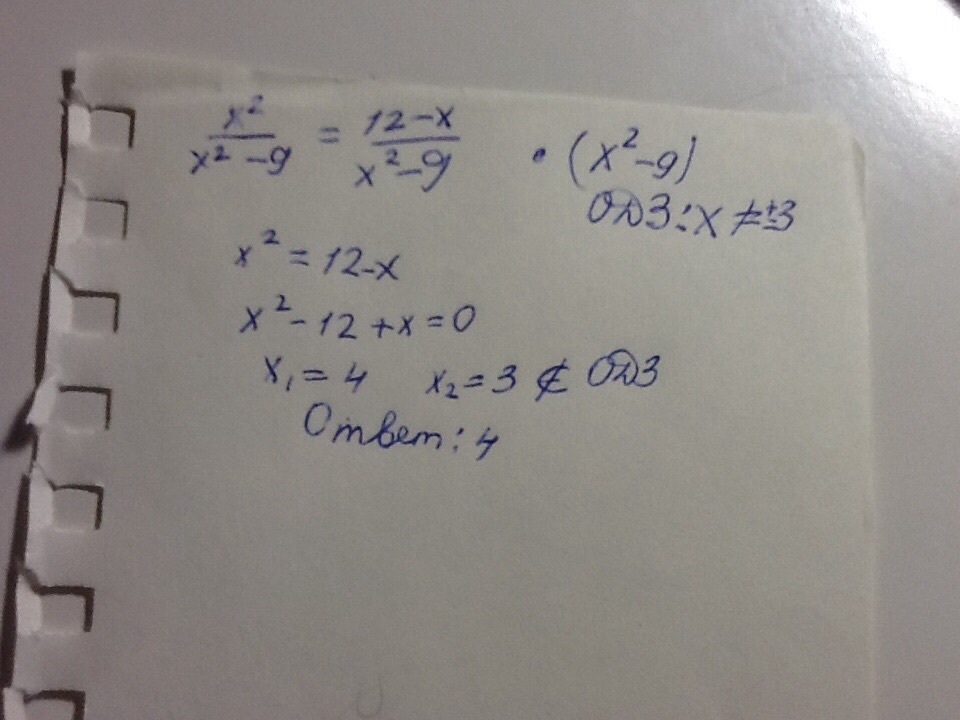 x²/(x² - 9) = (12 - x)/(x² - 9) • (x² - 9)
ОДЗ: x ≠ ±3
x² = 12 - x
x² - 12 + x = 0
x₁ = 4 x₂ = 3 ∉ ОДЗ
Ответ: 4